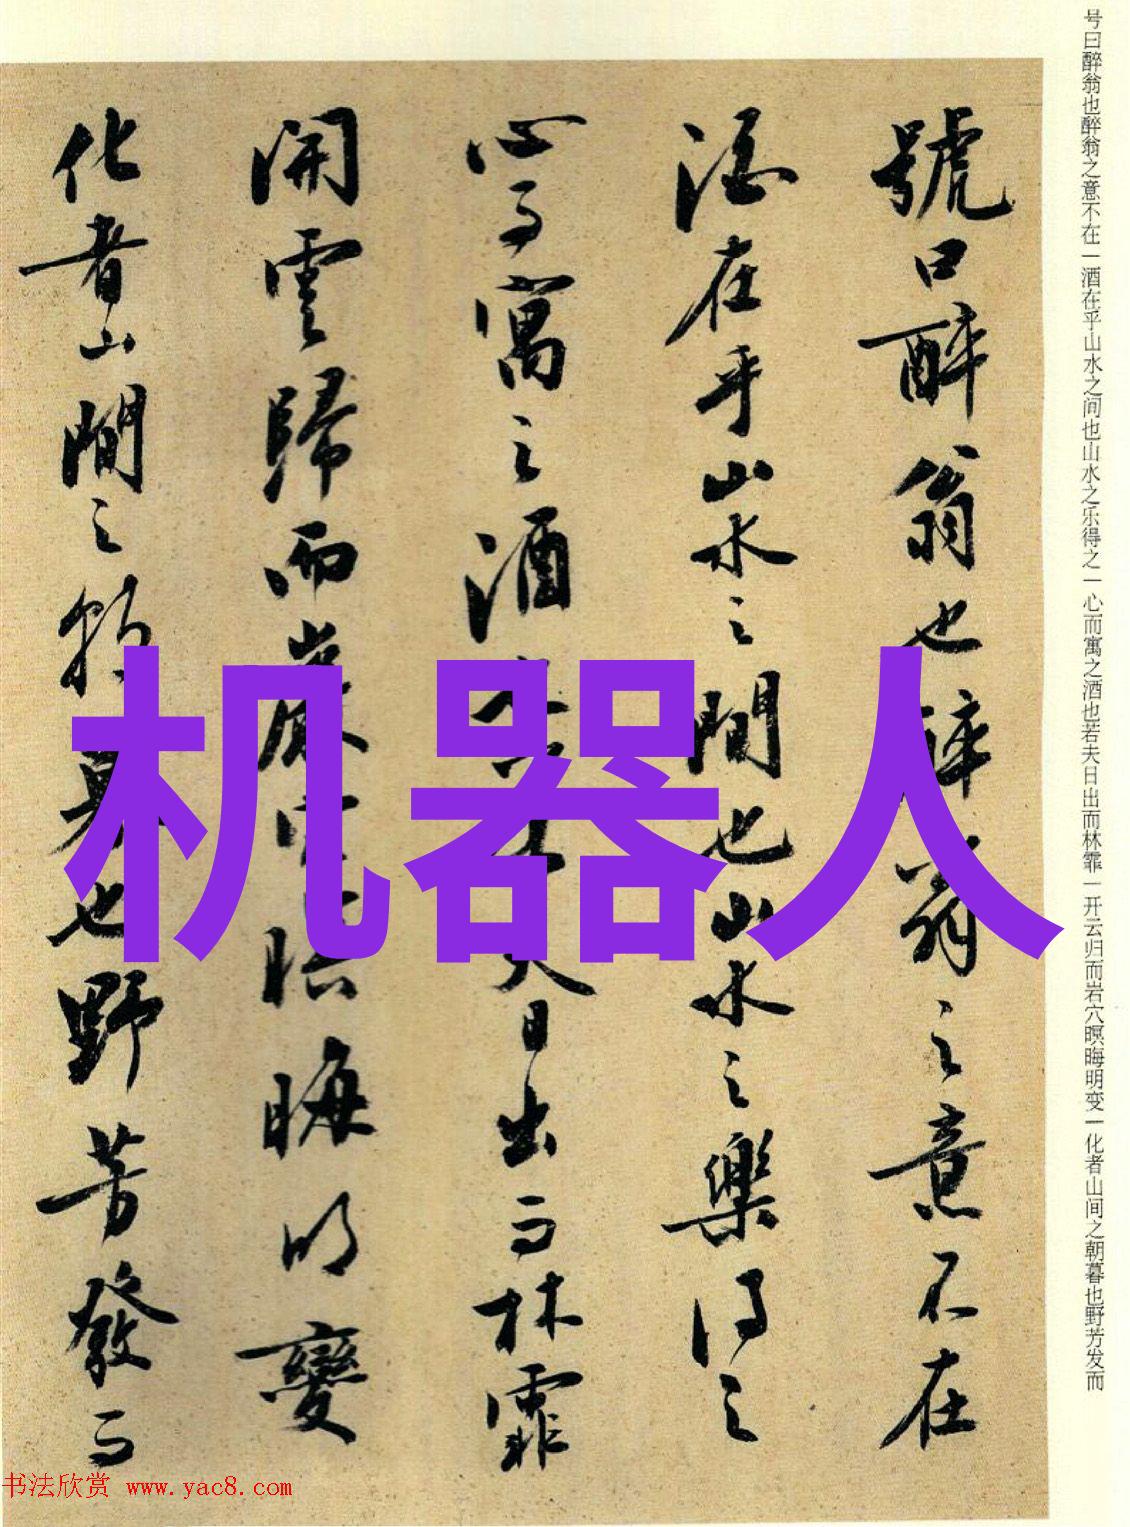 号曰醉翁也醉翁之意不在一酒在乎山水之间也山水之乐得之一心而寓之酒也若夫日出而林霏一开云归而岩穴暝晦明变一化者山间之朝暮也野芳发而
號曰醉翁也醉翁之意不在
酒在乎山水之間也山水之樂得之
心而寓之酒也若夫日出而林霏
開雲歸而巖穴暝晦明變
化者山間之朝暮也野芳發而
机器人
书法欣赏 www.yac8.com